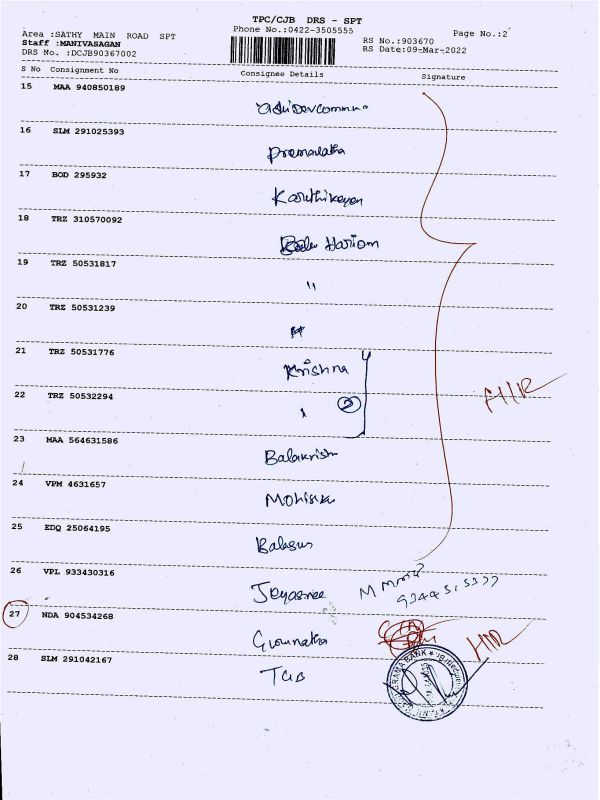 TPC/CJB DRS - SPT
Area :SATHY MAIN ROAD SPT Phone No.:0422-3505555 Page No.:2
Staff :MANIVASAGAN RS No.:903670
DRS No. :DCJB90367002 RS Date:09-Mar-2022
S No Consignment No Consignee Details Signature
15 MAA 940850189
16 SLM 291025393
Premalatha
17 BOD 295932
Karuthikeyan
18 TRZ 310570092
Hariom
19 TRZ 50531817
"
20 TRZ 50531239
21 TRZ 50531776
Krishna
22 TRZ 50532294
2
23 MAA 564631586
Balakrish
24 VPM 4631657
25 EDQ 25064195
26 VPL 933430316
Jeyasree
27 NDA 904534268
28 SLM 291042167
TGB
GRAMA BANK